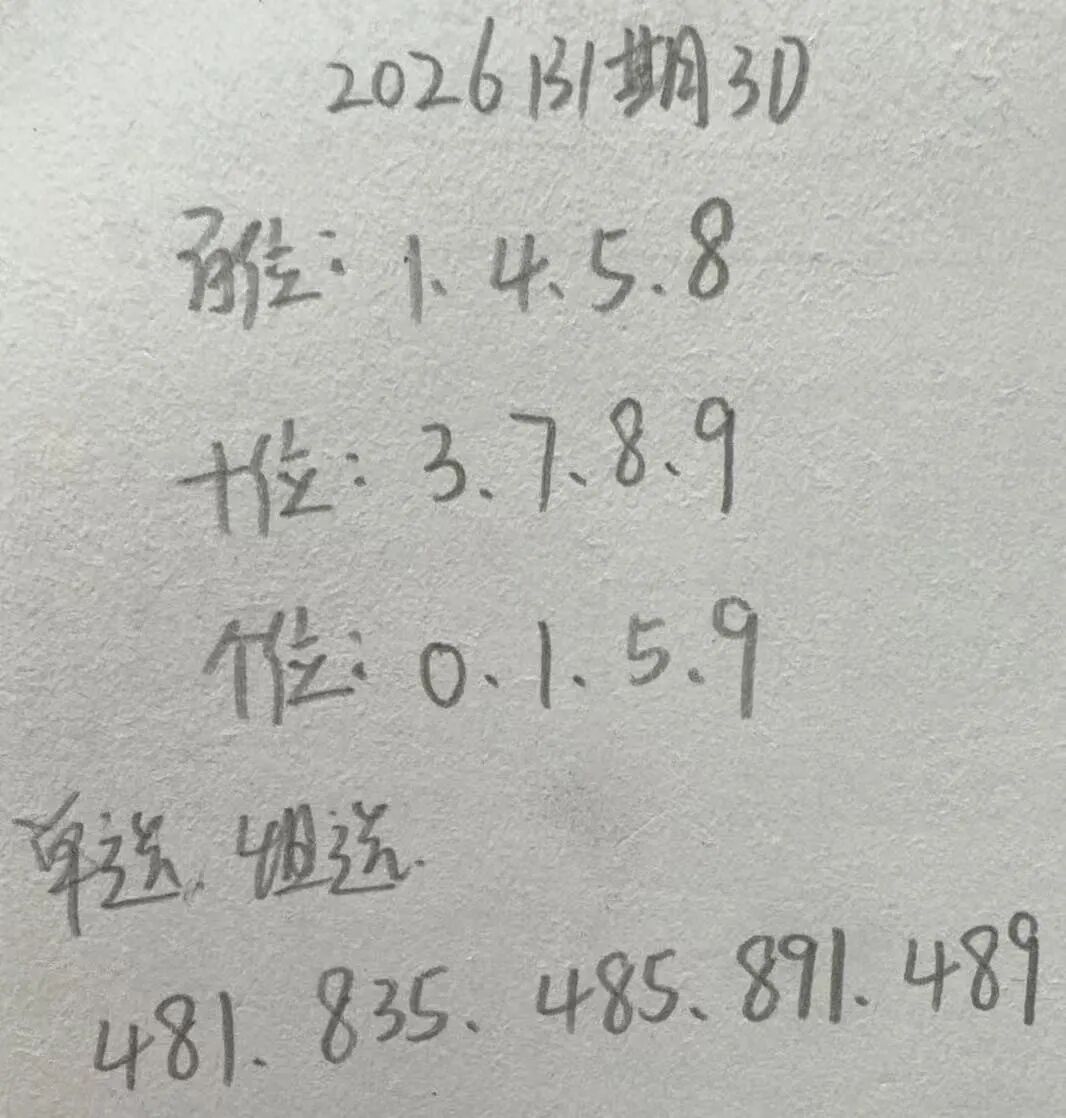 2026131期3D
百位：1、4、5、8
十位：3、7、8、9
个位：0、1、5、9
单选、组选.
481、835、485、891、489